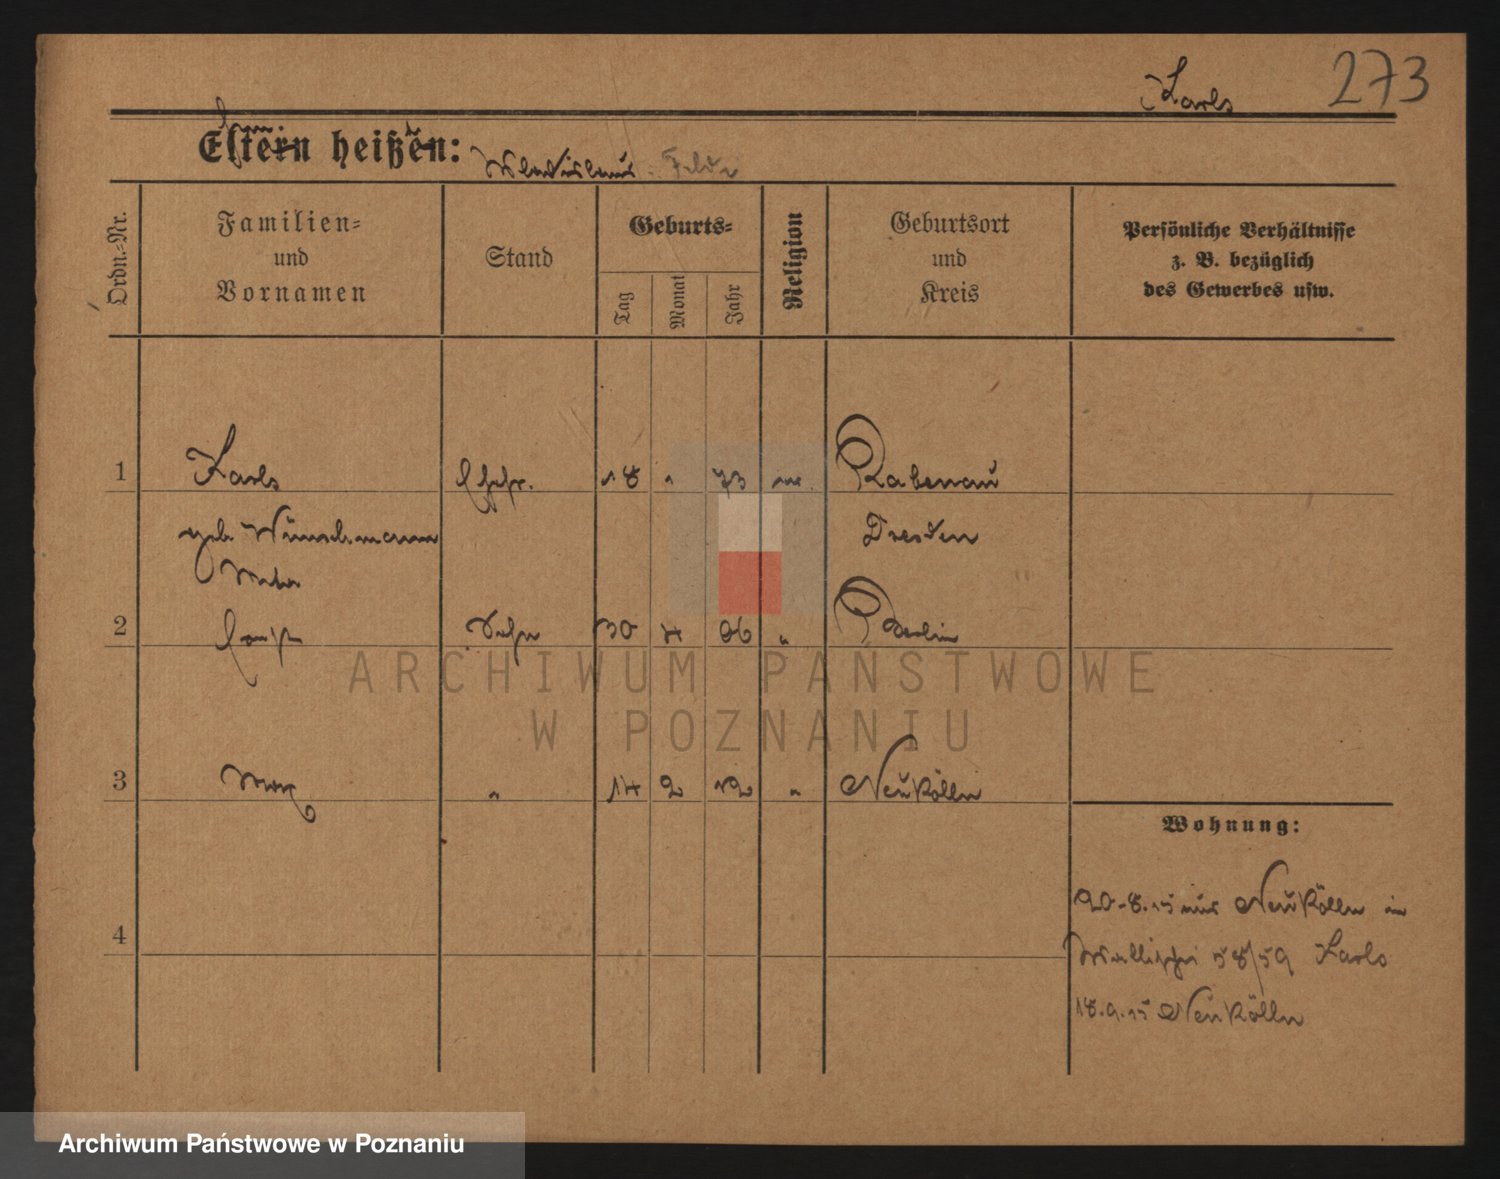 Karls 273
Eltern heißen:
Wladislaus Feldw
Ordn.=Nr.
Familien=
und
Vornamen
Stand
Geburts=
Tag
Monat
Jahr
Religion
Geburtsort
und
Kreis
Persönliche Verhältnisse
z. B. bezüglich
des Gewerbes usw.
1 Karls Ehefr. 18 1 73 Rabenau
geb. Wünschmann Dresden
2 30 4 06 " Berlin
3 Max " 14 2 12 " Neukölln
Wohnung:
4
20.8.15 aus Neukölln in
Wallischei 58/59 Karls
18.9.15 Neukölln
ARCHIWUM PAŃSTWOWE
W POZNANIU
Archiwum Państwowe w Poznaniu